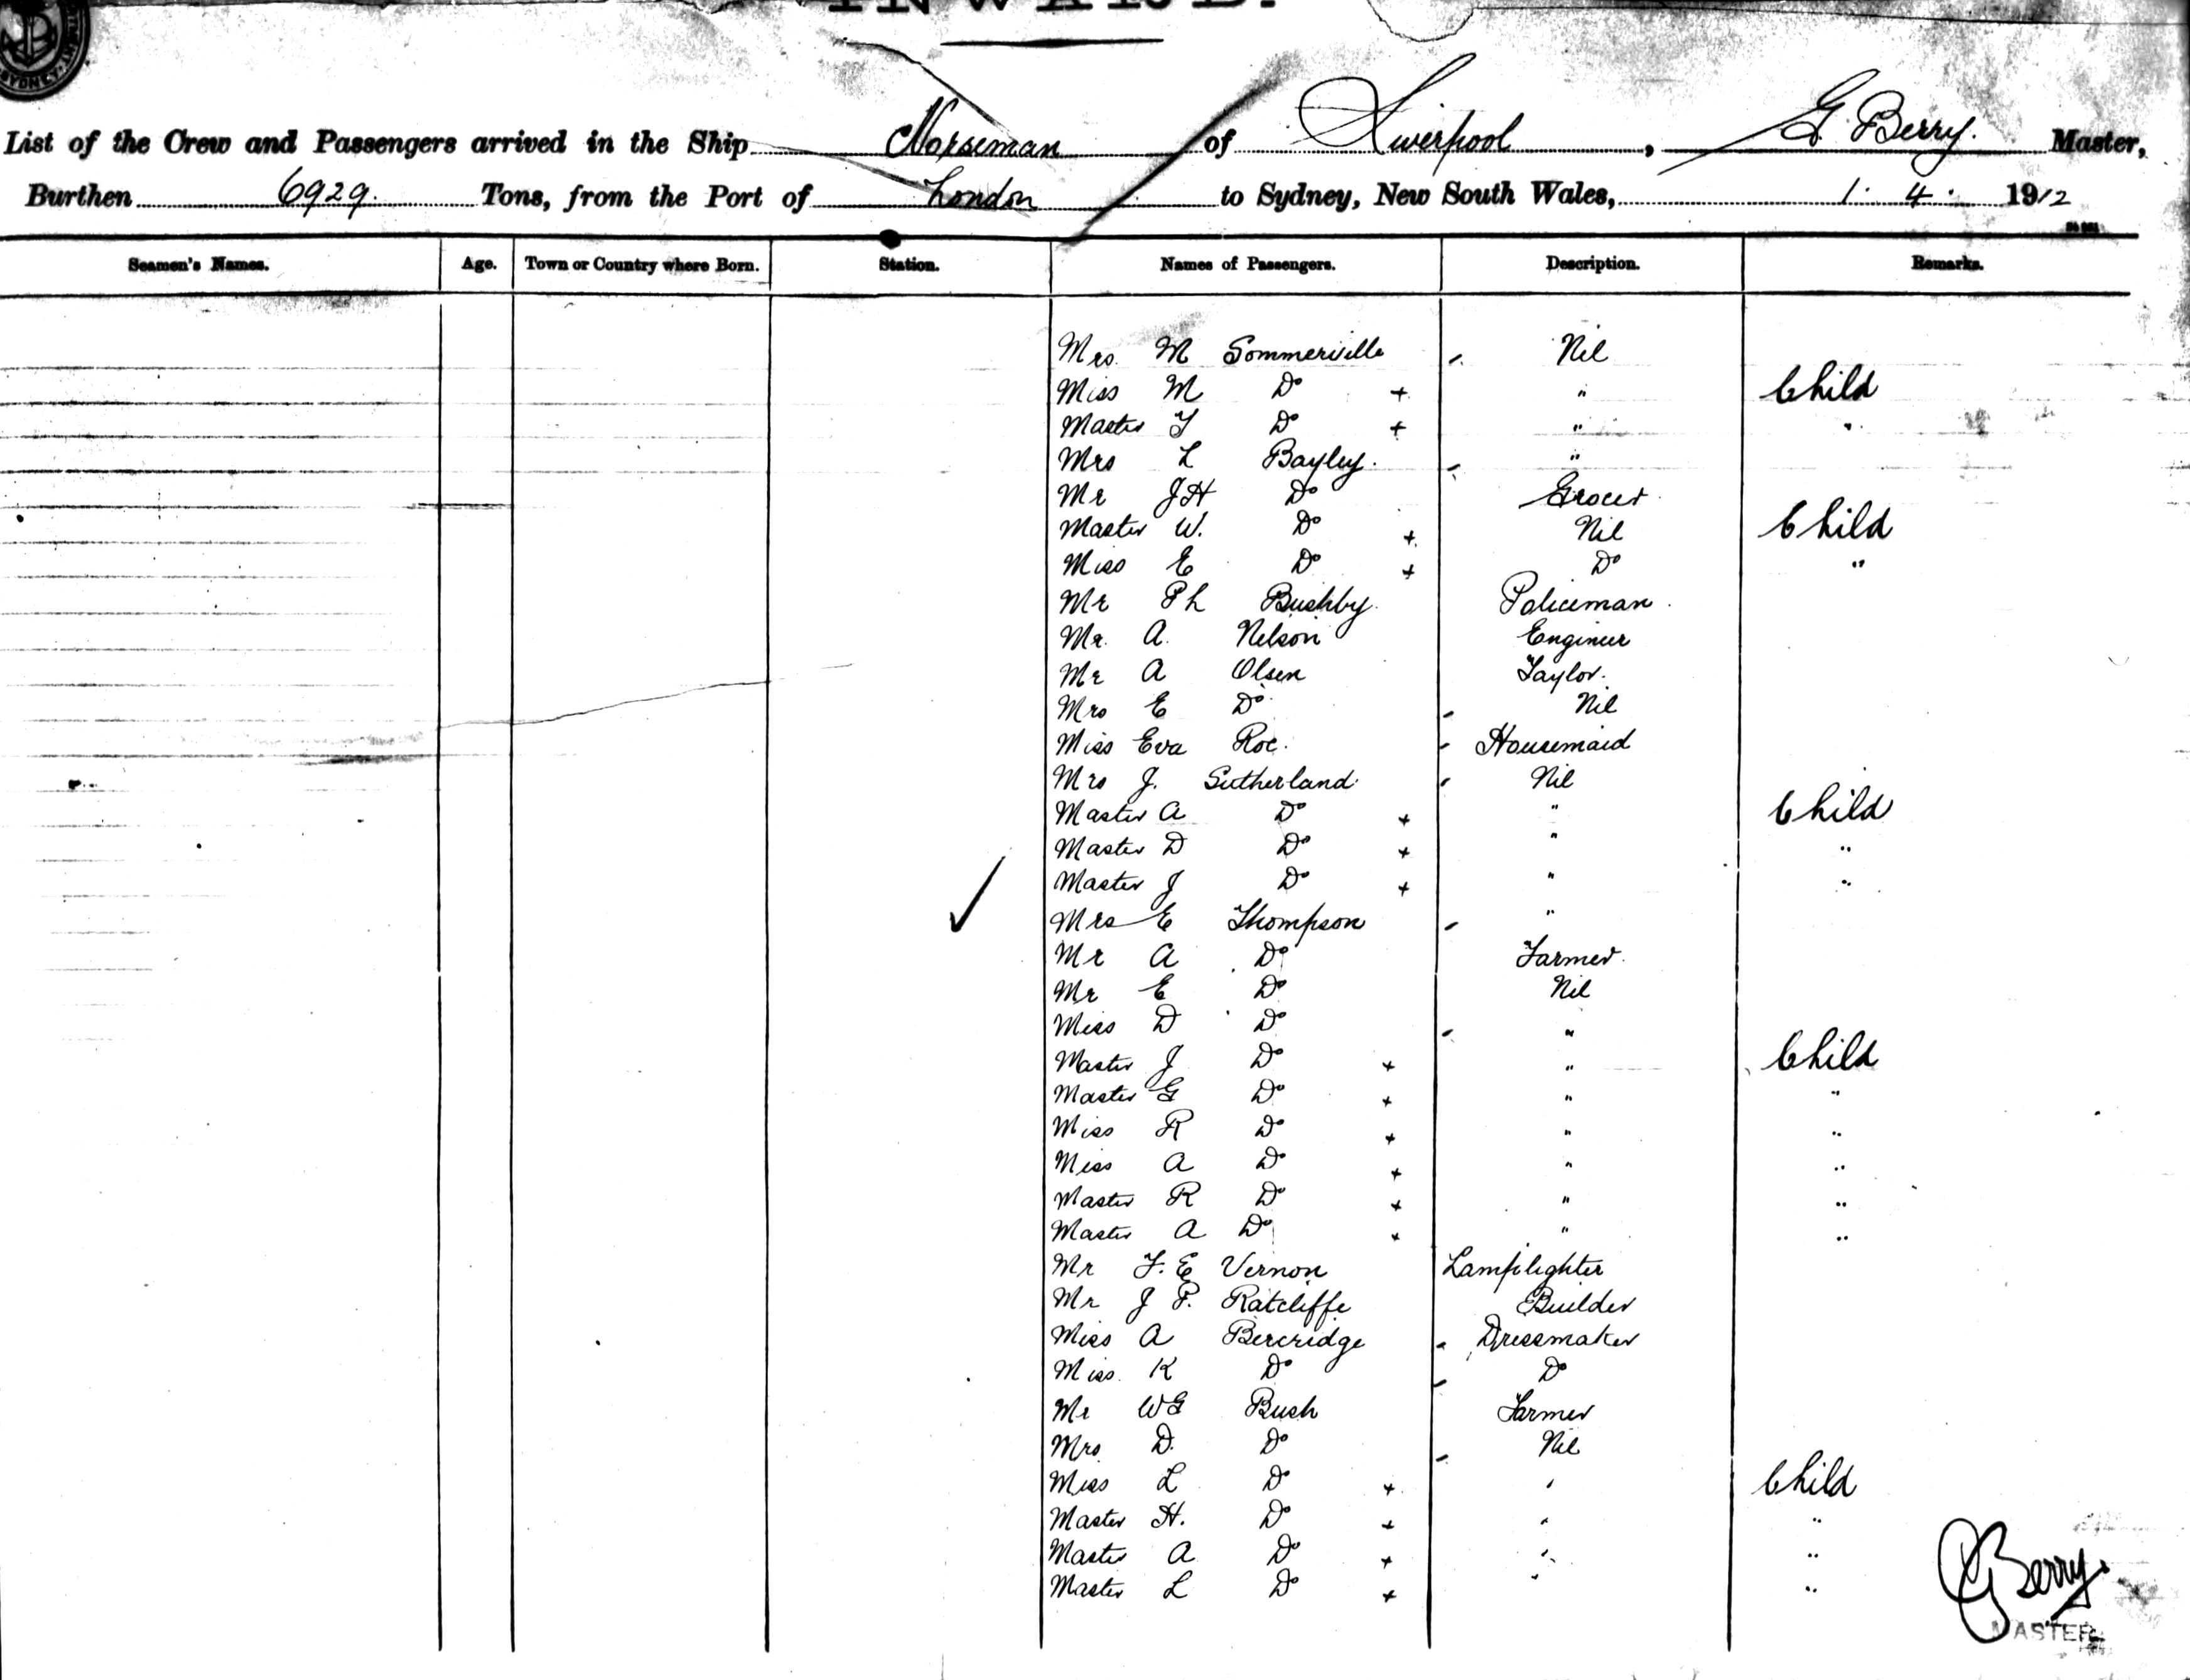 INWARD.
SYDNEY
List of the Crew and Passengers arrived in the Ship Norseman of Liverpool, G Berry. Master,
Burthen 6929. Tons, from the Port of London to Sydney, New South Wales, 1. 4. 1912
Seamen's Names. Age. Town or Country where Born. Station. Names of Passengers. Description. Remarks.
Mrs. M Sommerville Nil
Miss M Do + " Child
Master Do + " "
Mrs L Bayley. "
Mr JH Do Grocer
Master W. Do + Nil Child
Miss E Do + Do "
Mr Ph Bushby. Policeman.
Mr. A. Nelson Engineer
Mr A Olsen Taylor.
Mrs E Do Nil
Miss Eva Roe. Housemaid
Mrs J. Sutherland Nil
Master A Do + " Child
Master D Do + " "
Master J Do + " "
✓ Mrs E Thompson "
Mr A Do Farmer.
Mr E Do Nil
Miss D Do "
Master J Do + " Child
Master G Do + " "
Miss R Do + " "
Miss A Do + " "
Master R Do + " "
Master A Do + " "
Mr F. E Vernon Lamplighter
Mr J P. Ratcliffe Builder
Miss A Bercridge Dressmaker
Miss. K Do Do
Mr WG Bush Farmer
Mrs D. Do Nil
Miss L Do + " Child
Master H. Do + " "
Master A Do + " "
Master L Do + " "
G Berry.
MASTER.